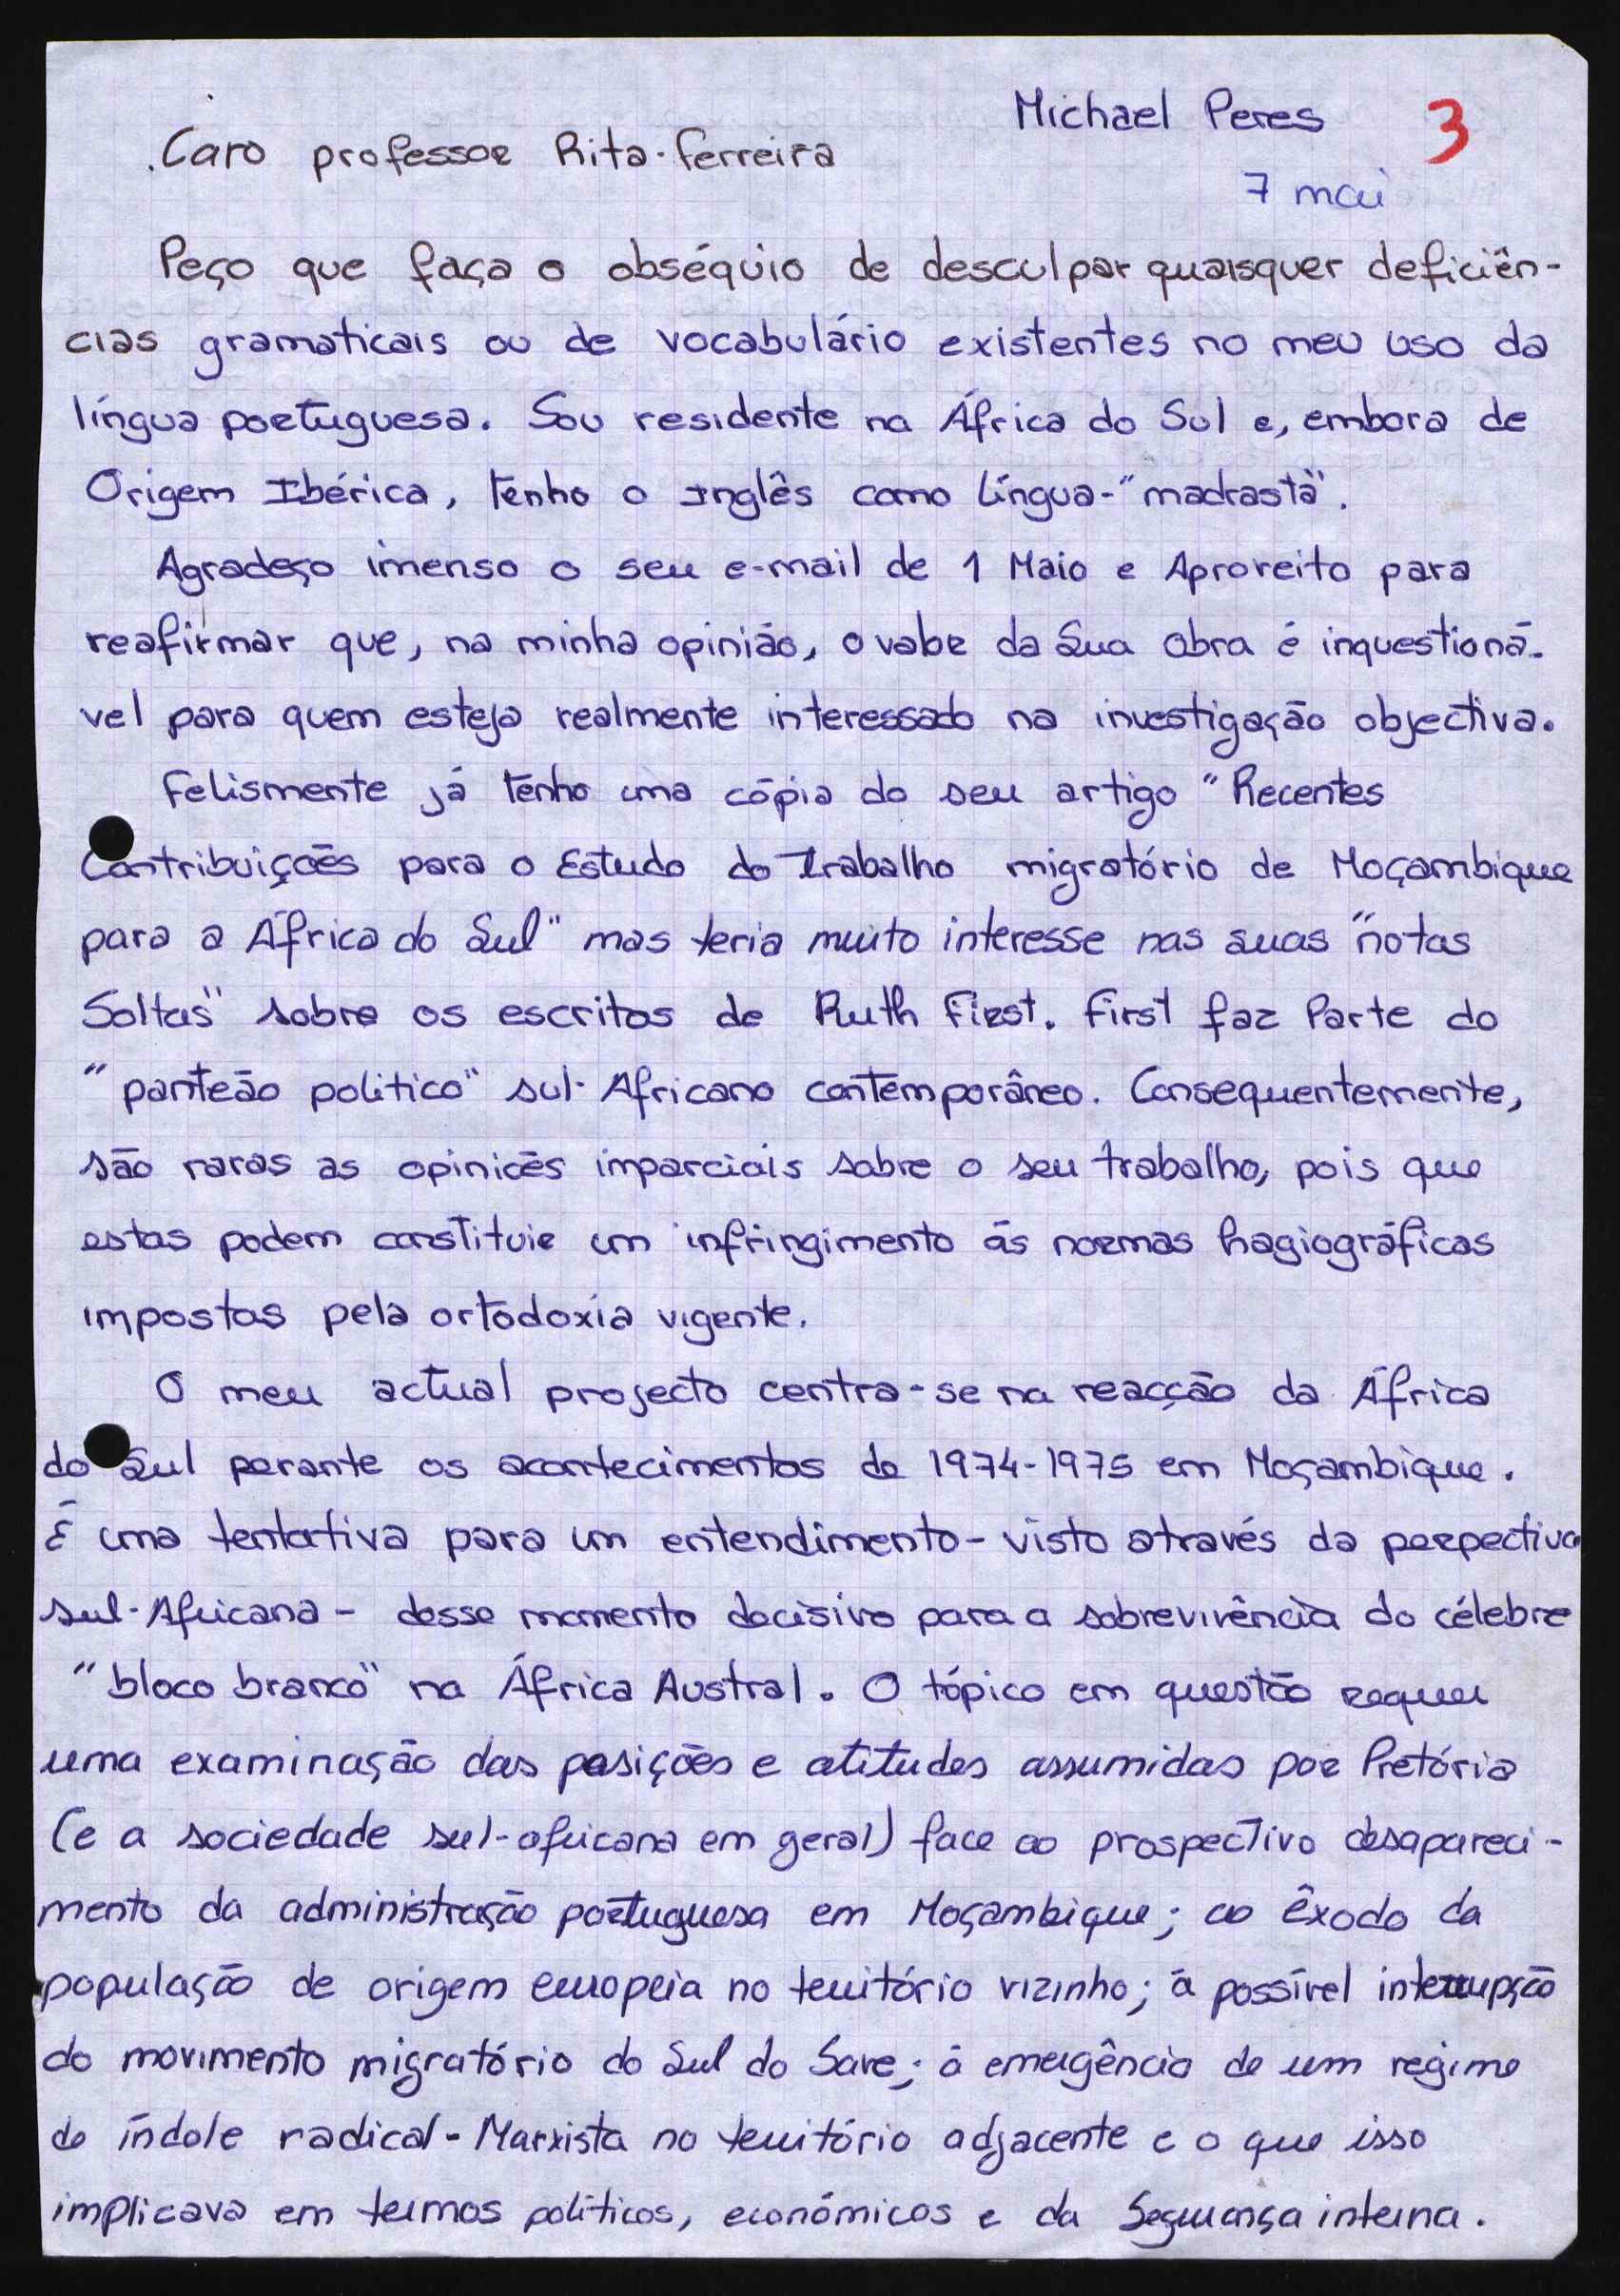 Michael Peres 3
Caro professor Rita-Ferreira
7 mai
Peço que faça o obséquio de desculpar quaisquer deficiên-
cias gramaticais ou de vocabulário existentes no meu uso da
língua portuguesa. Sou residente na África do Sul e, embora de
Origem Ibérica, tenho o Inglês como língua-"madrasta".
Agradeço imenso o seu e-mail de 1 Maio e Aproveito para
reafirmar que, na minha opinião, o valor da Sua Obra é inquestioná-
vel para quem esteja realmente interessado na investigação objectiva.
Felismente já tenho uma cópia do seu artigo "Recentes
Contribuições para o Estudo do Trabalho migratório de Moçambique
para a África do Sul" mas teria muito interesse nas suas "notas
Soltas" sobre os escritos de Ruth First. First faz Parte do
"panteão politico" sul-Africano contemporâneo. Consequentemente,
são raras as opiniões imparciais sobre o seu trabalho, pois que
estas podem constituir um infringimento ás normas hagiográficas
impostas pela ortodoxia vigente.
O meu actual projecto centra-se na reacção da África
do Sul perante os acontecimentos de 1974-1975 em Moçambique.
É uma tentativa para um entendimento - visto através da perpectiva
sul-Africana - desse momento decisivo para a sobrevivência do célebre
"bloco branco" na África Austral. O tópico em questão requer
uma examinação das posições e atitudes assumidas por Pretória
(e a sociedade sul-africana em geral) face ao prospectivo desapareci-
mento da administração portuguesa em Moçambique; ao êxodo da
população de origem europeia no território vizinho; á possível interrupção
do movimento migratório do Sul do Save; á emergência de um regime
de índole radical-Marxista no território adjacente e o que isso
implicava em termos políticos, económicos e da Segurança interna.